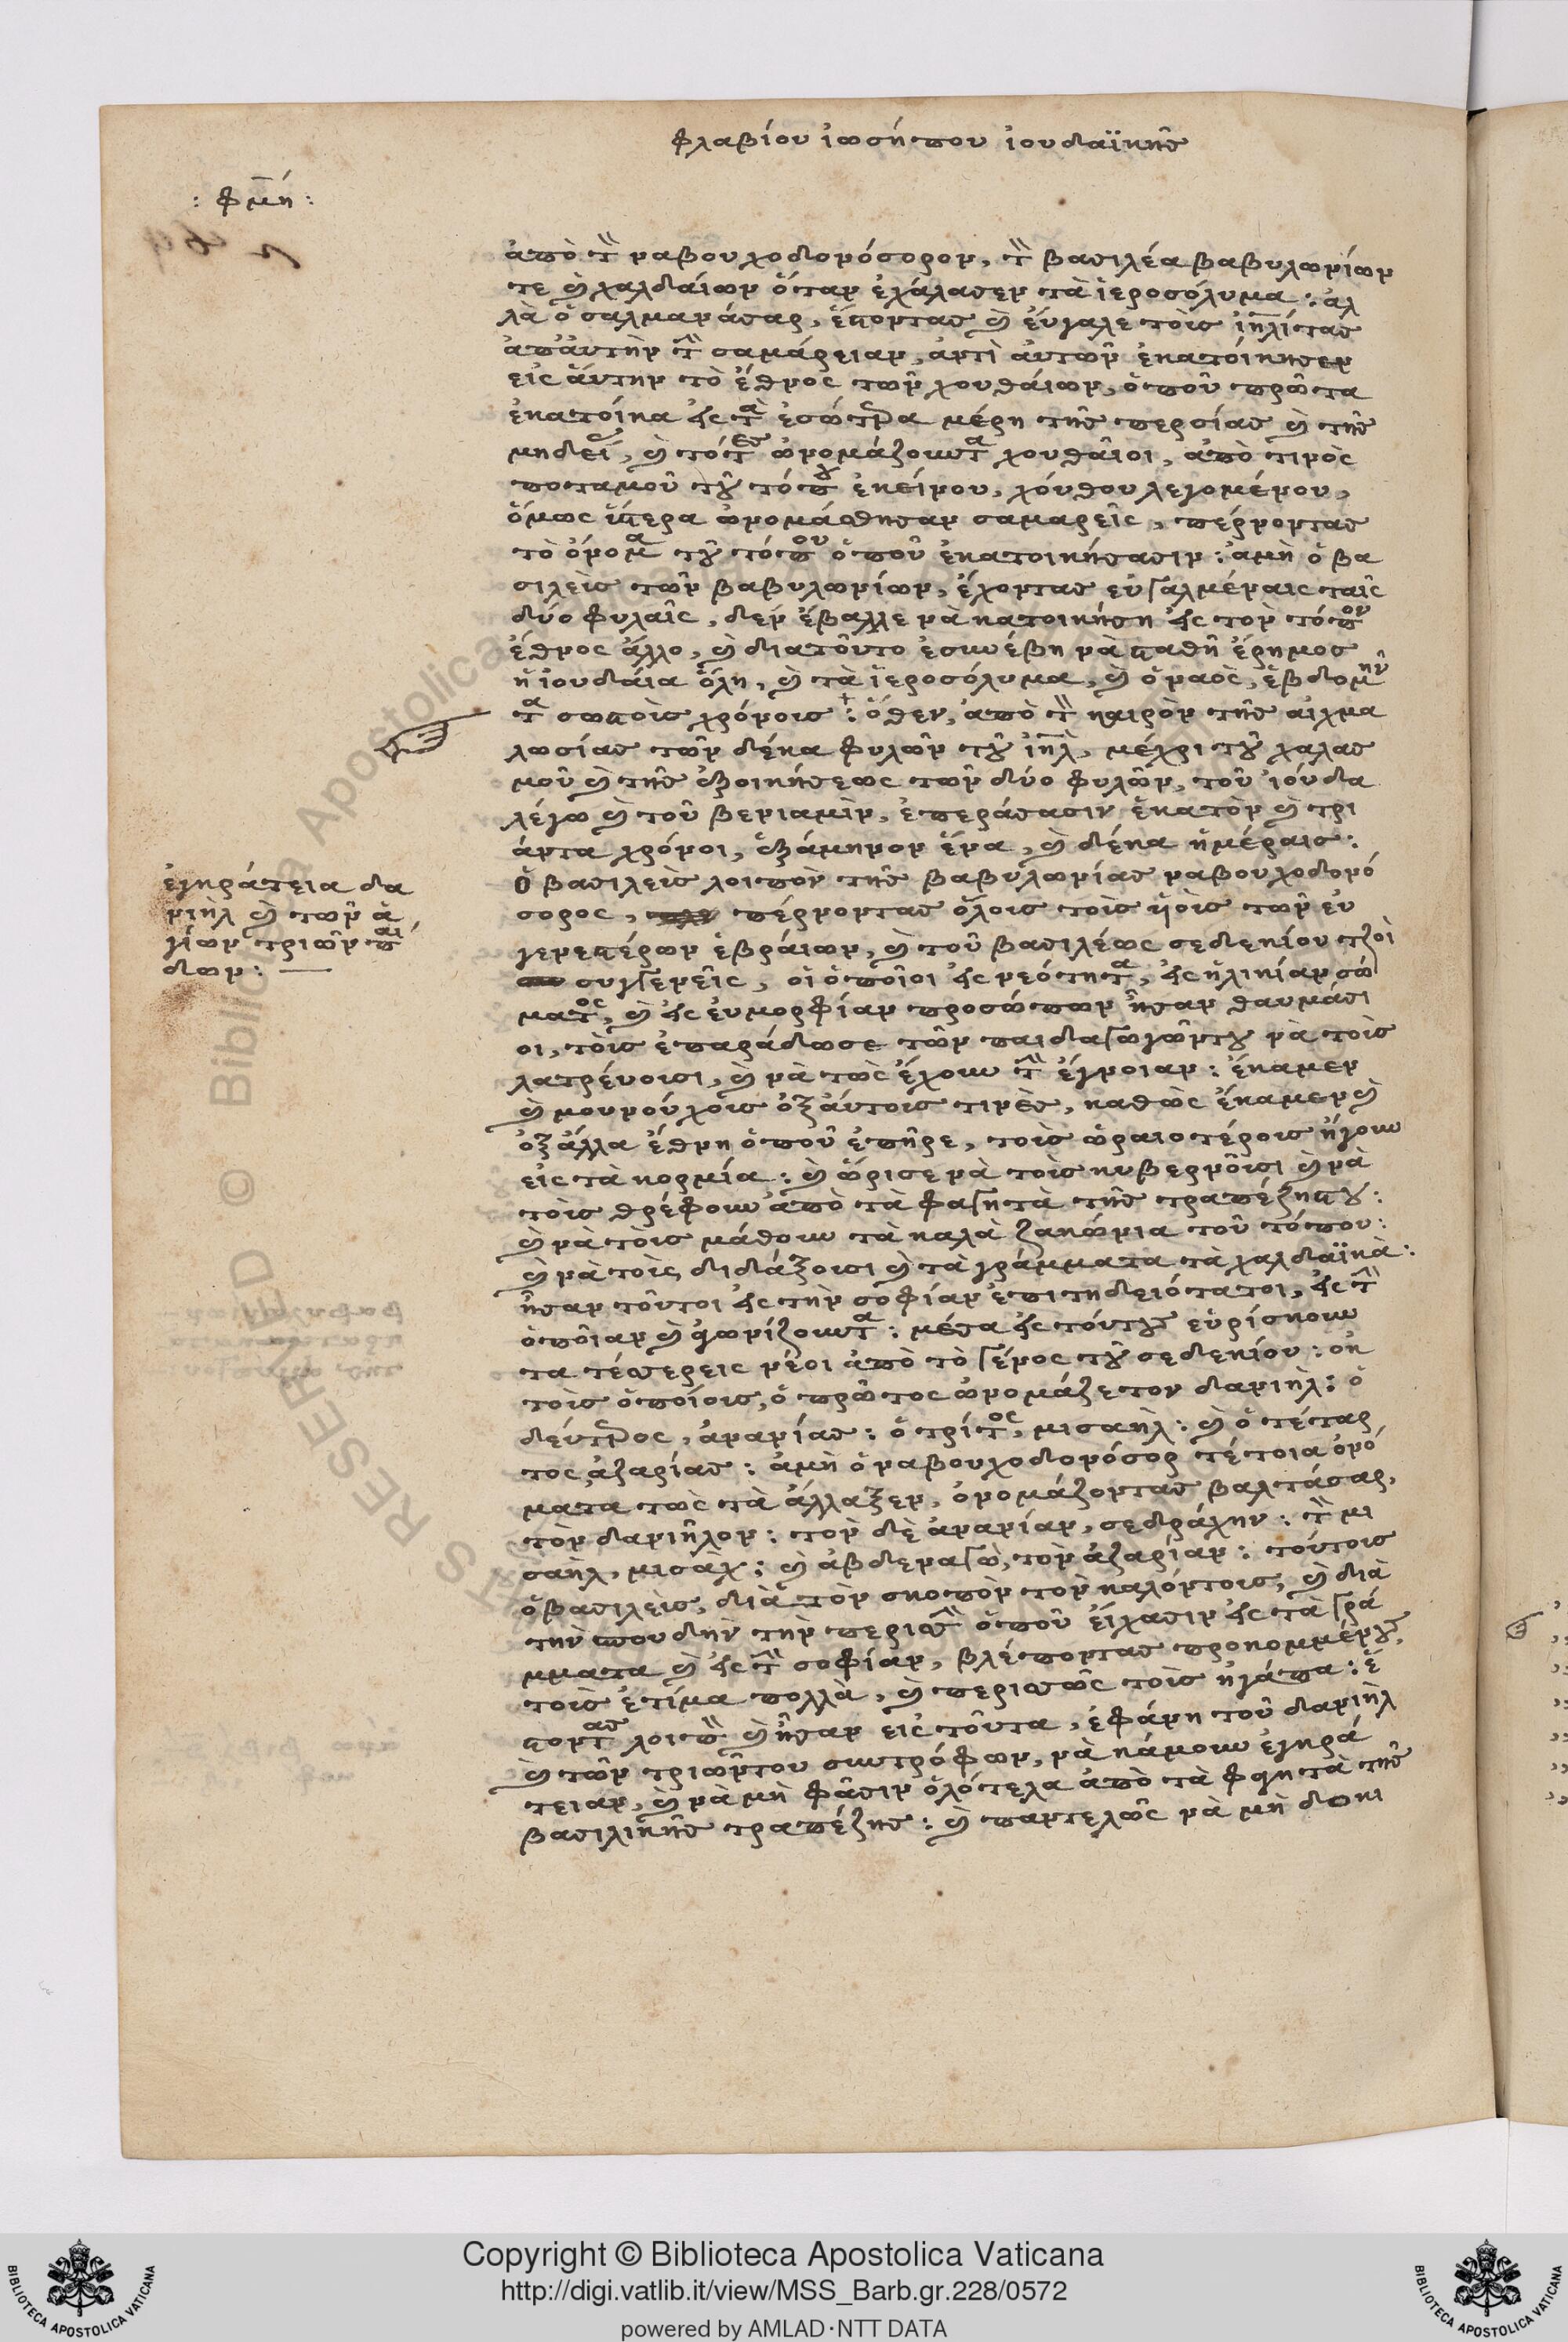 φλαβίου ἰωσήπου ἰουδαϊκῆς
: φμη :
ἀπὸ τὸν ναβουχοδονόσορον, τὸν βασιλέα βαβυλωνίων
τε καὶ χαλδαίων ὅταν ἐχάλασεν τὰ ἱεροσόλυμα: ἀλ
λὰ ὁ σαλμανάσαρ, ἔστοντας καὶ εὔγαλε τοὶς ἰηλίτας
ἀπ' αὐτὴν τὴν σαμάρειαν, ἀντὶ αὐτῶν ἐκατοίκησεν
εἰς αὔτην τὸ ἔθνος τῶν χουθαίων, ὁποῦ πρῶτα
ἐκατοίκα εἰς τὰ ἐσώτερα μέρη τῆς περσίας καὶ τῆς
μηδείας, καὶ τότες ὠνομάζουντα χουθαῖοι, ἀπὸ τινὸς
ποταμοῦ τοῦ τόπου ἐκείνου, χούθου λεγομένου,
ὅμως ὕστερα ὠνομάσθησαν σαμαρεῖς, πέρνοντας
τὸ ὄνομα τοῦ τόπου ὁποῦ ἐκατοικήσασιν: ἀμὴ ὁ βα
σιλεὺς τῶν βαβυλωνίων, ἔχοντας εὐγαλμέναις ταῖς
δύο φυλαῖς, δὲν ἔβαλλε νὰ κατοικήση εἰς τὸν τόπον
ἔθνος ἄλλο, καὶ διατοῦντο ἐσυνέβη νὰ σταθῆ ἔρημος
ἡ ἰουδαία ὅλη, καὶ τὰ ἱεροσόλυμα, καὶ ὁ ναὸς, ἑβδομην
τα σωστοὶς χρόνοις: ὅθεν, ἀπὸ τὸν καιρὸν τῆς αἰχμα
λωσίας τῶν δέκα φυλῶν τοῦ ἰηλ, μέχρι τοῦ χαλασ
μοῦ καὶ τῆς ἐξοικήσεως τῶν δύο φυλῶν, τοῦ ἰούδα
λέγω καὶ τοῦ βενιαμὶν, ἐπεράσασιν ἑκατὸν καὶ τρι
άντα χρόνοι, ἑξάμηνον ἕνα, καὶ δέκα ἡμέραις:
ἐγκράτεια δα
νιὴλ καὶ τῶν ἁ
γίων τριῶν παί
δων: —
Ὁ βασιλεὺς λοιπὸν τῆς βαβυλωνίας ναβουχοδονό
σορος, πέρνοντας ὅλοις τοὶς ὑιοὶς τῶν εὐ
γενεστέρων ἑβραίων, καὶ τοῦ βασιλέως σεδεκίου τζοὶ
συγγενεῖς, οἱ ὁποῖοι εἰς νεότητα, εἰς ἡλικίαν σώ
ματος, καὶ εἰς εὐμορφίαν προσώπων ἦσαν θαυμάσι
οι, τοὶς ἐπαράδωσε τῶν παιδαγωγῶντου νὰ τοὶς
λατρεύουσι, καὶ νὰ τῶς ἔχουν τὴν ἔγνοιαν: ἔκαμεν
καὶ μουνούχοις ὀξ' αὐτοὶς τινὲς, καθὼς ἔκαμεν καὶ
ὀξ' ἄλλα ἔθνη ὁποῦ ἐπῆρε, τοὶς ὡραιοτέροις ἤγουν
εἰς τὰ κορμία: καὶ ὥρισε νὰ τοὶς κυβερνοῦσι καὶ νὰ
τοὶς θρέφουν ἀπὸ τὰ φαγητὰ τῆς τραπέζηςτου:
καὶ νὰ τοὶς μάθουν τὰ καλὰ ζακώνια τοῦ τόπου:
καὶ νὰ τοὶς διδάξουσι καὶ τὰ γράμματα τὰ χαλδαϊκὰ:
ἦσαν τοῦτοι εἰς τὴν σοφίαν ἐπιτηδειότατοι, εἰς τὴν
ὁποῖαν καὶ γνωρίζουντα: μέσα εἰς τούτους εὑρίσκουν
τα τέσσερεις νέοι ἀπὸ τὸ γένος τοῦ σεδεκίου: ὀκ
τοὶς ὁποίοις, ὁ πρῶτος ὠνομάζετον δανιὴλ: ὁ
δεύτερος, ἀνανίας: ὁ τρίτος, μισαὴλ: καὶ ὁ τέταρ
τος ἀζαρίας: ἀμὴ ὁ ναβουχοδονόσορ τέτοια ὀνό
ματα τῶς τὰ ἄλλαξεν, ὀνομάζοντας βαλτάσαρ,
τὸν δανιῆλον: τὸν δὲ ἀνανίαν, σεδράχην: τὸν μι
σαὴλ, μισάχ: καὶ ἀβδεναγὼ, τὸν ἀζαρίαν: τούτοις
ὁ βασιλεὺς, διὰ τὸν σκοπὸν τὸν καλόντοις, καὶ διὰ
τὴν σπουδὴν τὴν περισσὴν ὁποῦ εἴχασιν εἰς τὰ γρά
μματα καὶ εἰς τὴν σοφίαν, βλέποντας προκομμένους,
τοὶς ἐτίμα πολλὰ, καὶ περισσῶς τοὶς ἠγάπα: ἔ
στοντας λοιπὸν καὶ ἦσαν εἰς τοῦτα, ἐφάνη τοῦ δανιὴλ
καὶ τῶν τριῶντου συντρόφων, νὰ κάμουν ἐγκρά
τειαν, καὶ νὰ μὴ φᾶσιν ὁλότελα ἀπὸ τὰ φαγητὰ τῆς
βασιλικῆς τραπέζης: καὶ παντελῶς νὰ μὴ δοκι
Copyright © Biblioteca Apostolica Vaticana
http://digi.vatlib.it/view/MSS_Barb.gr.228/0572
powered by AMLAD·NTT DATA
BIBLIOTECA APOSTOLICA VATICANA
BIBLIOTECA APOSTOLICA VATICANA